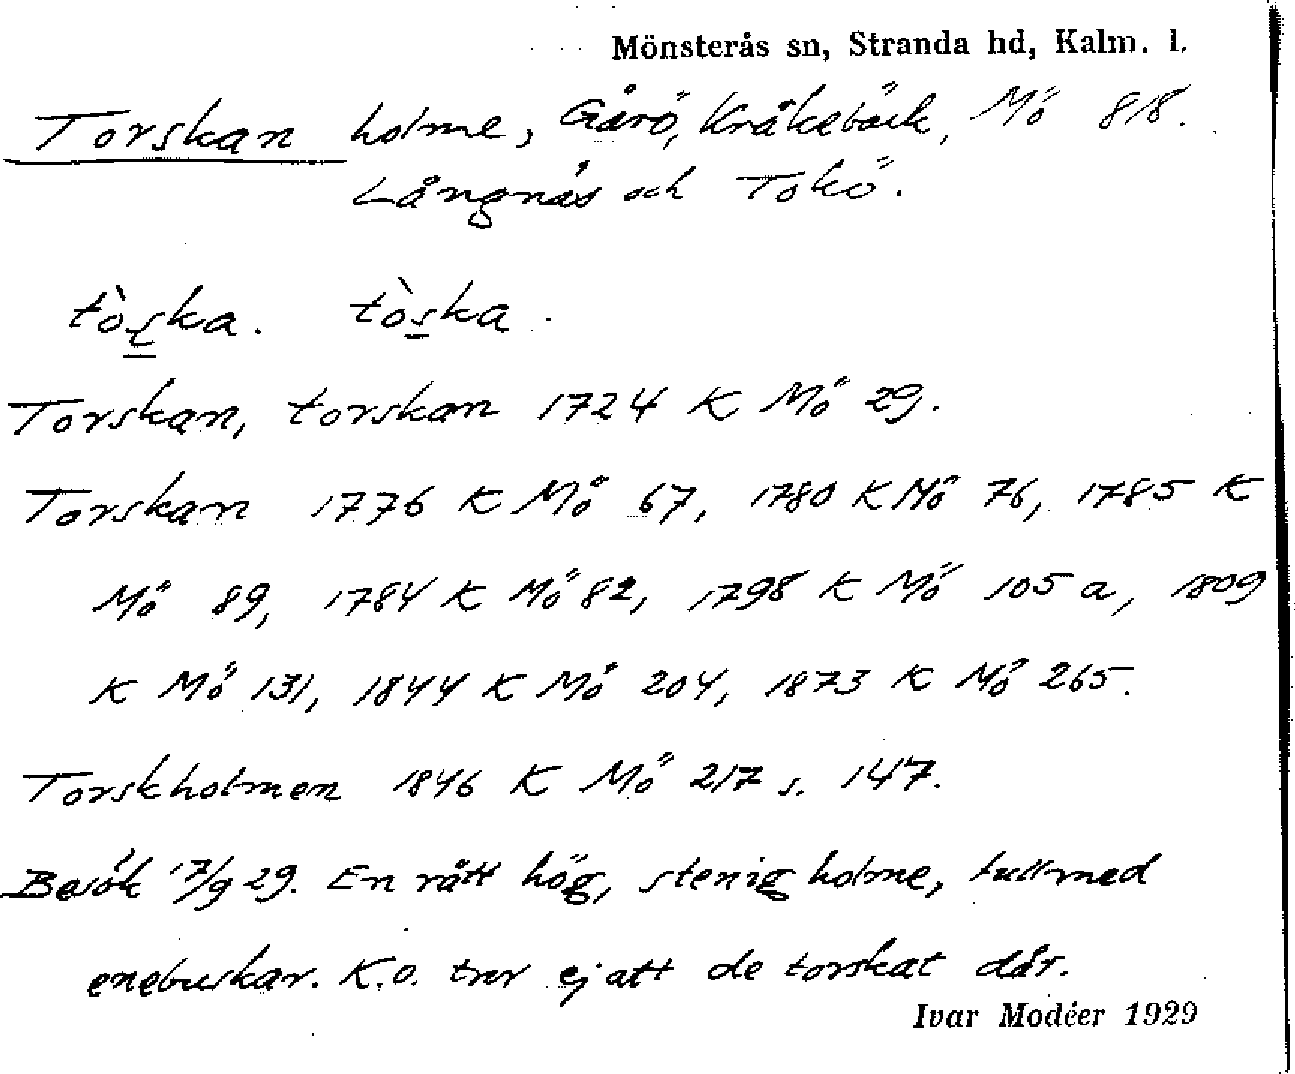 Mönsterås sn, Stranda hd, Kalm. l.
Torskan holme, Gårö, Kråkebäck, Mö 818.
Långnäs och Tokö.
tòska. tòska.
Torskan, torskan 1724 K Mö 29.
Torskan 1776 K Mö 67, 1780 K Mö 76, 1785 K
Mö 89, 1784 K Mö 82, 1798 K Mö 105 a, 1809
K Mö 131, 1844 K Mö 204, 1873 K Mö 265.
Torskholmen 1846 K Mö 217 s. 147.
Besök 17/9 29. En rätt hög, stenig holme, full med
enebuskar. K.O. tror ej att de torskat där.
Ivar Modéer 1929